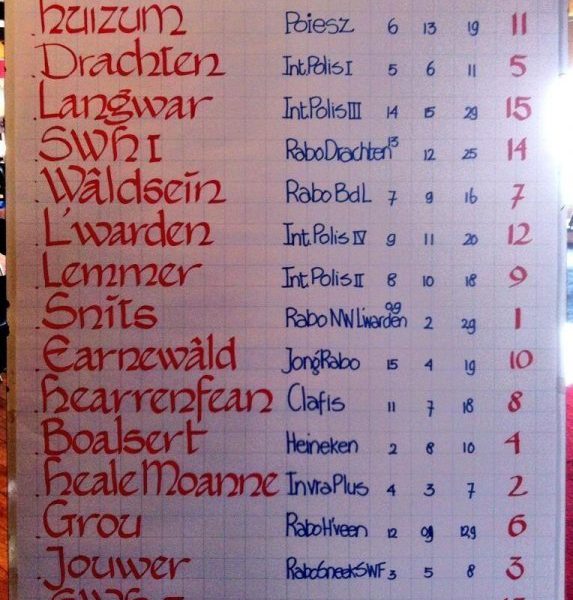 huizum Poiesz 6 13 19 11
Drachten Int.Polis I 5 6 11 5
Langwar Int.Polis III 14 15 29 15
SWh I Rabo Drachten 13 12 25 14
Wâldsein Rabo BdL 7 9 16 7
L'warden Int.Polis IV 9 11 20 12
Lemmer Int.Polis II 8 10 18 9
Snits Rabo NW L'warden 0,9 2 2,9 1
Earnewâld Jong Rabo 15 4 19 10
hearrenfean Clafis 11 7 18 8
Boalsert Heineken 2 8 10 4
heale Moanne Invra Plus 4 3 7 2
Grou Rabo H'veen 12 0,9 12,9 6
Jouwer Rabo Sneek SWF 3 5 8 3